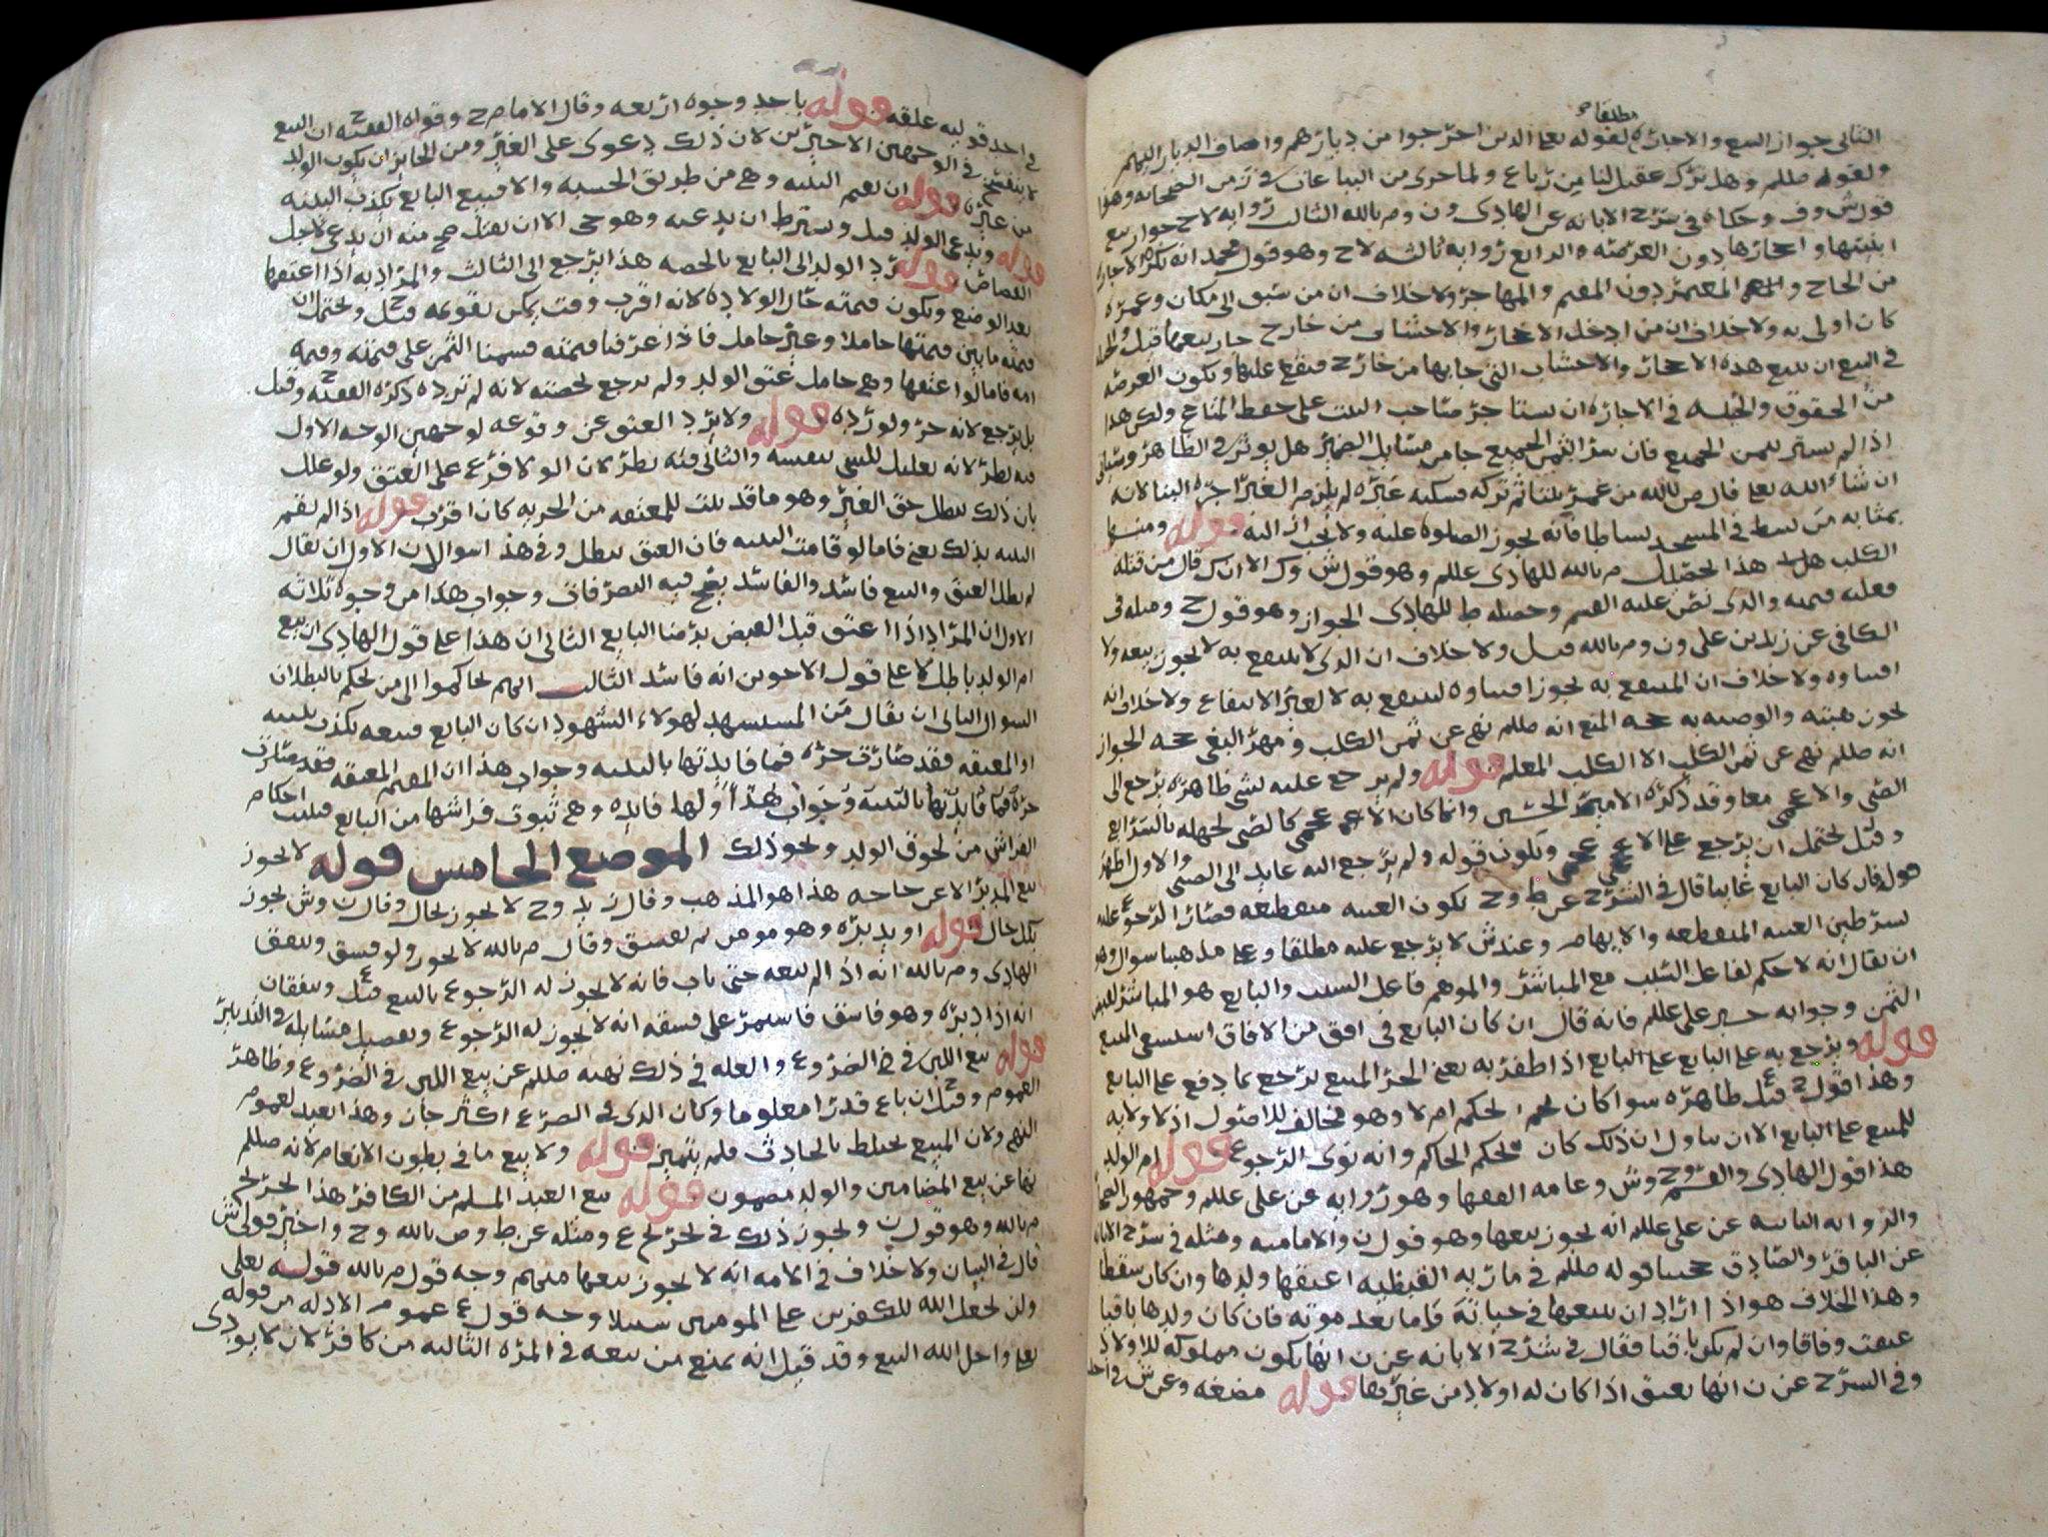 مطلقا
الثاني جواز البيع والاجاره لقوله تعالى الذين اخرجوا من ديارهم واضاف الديار اليهم
ولقوله صللم وهل ترك عقيل لنا من رباع ولما جرى من البياعات في زمن الصحابه وهذا
قول ش وف وحكاه في شرح الابانه عن الهادي ون وم بالله الثالث روايه لاح جواز بيع
ابنيتها واحجارها دون العرصه والرابع روايه ثالثه لاح وهو قول محمد انه تكره الاجاره
من الحاج والمعتمر دون المقيم والمهاجر ولا خلاف ان من سبق الى مكان وعمره
كان اولى به ولا خلاف ان من ادخل الاحجار والاخشاب من خارج جاز بيعها قيل والحيله
في البيع ان يبيع هذه الاحجار والاخشاب التي جابها من خارج فيقع عليها وتكون العرصه
من الحقوق والحيله في الاجاره ان يستاجر صاحب البيت على حفظ المتاع ولكن هذا
اذا لم يستر بثمن الجميع فان ستر بثمن الجميع جا من مسايل الضمير هل يوثر في الظاهر وسياتي
ان شاء الله تعالى قال ص بالله من عمر بيتا ثم تركه فسكنه غيره لم يلزم الغير اجره البنا لانه
بمثابه من بسط في المسجد بساطا فانه يجوز الصلوه عليه ولا يجب ازالته قوله ومنها
الكلب هل هذا تحصيل م بالله للهادي عللم وهو قول ش وك الا ان ك قال من قتله
فعليه قيمته والذي نص عليه القسم وحصله ط للهادي الجواز وهو قول ح ومثله في
الكافي عن زيد بن علي ون وم بالله قيل ولا خلاف ان الذي لا ينتفع به لا يجوز بيعه ولا
اقتناوه ولا خلاف ان المنتفع به يجوز اقتناوه لينتفع به لا لغير الانتفاع ولا خلاف انه
يجوز هبته والوصيه به حجه المنع انه صللم نهى عن ثمن الكلب ومهر البغي حجه الجواز
انه صللم نهى عن ثمن الكلب الا الكلب المعلم قوله ولم يرجع عليه بشي ظاهره يرجع الى
الصبي والاعجمي معا وقد ذكره الامير الحسين وانما كان الاعجمي كالصبي لجهله بالشرايع
وقيل يحتمل ان يرجع على الاعجمي ويكون قوله ولم يرجع اليه عايد الى الصبي والاول اظهر
قوله فان كان البايع غايبا قال في الشرح عن ط وح تكون الغيبه منقطعه فصار الرجوع عليه
بشرطين الغيبه المنقطعه والايهام وعند ش لا يرجع عليه مطلقا وعلى مذهبنا سوال وهو
ان يقال انه لا حكم لفاعل السبب مع المباشر والموهم فاعل السبب والبايع هو المباشر لقبض
الثمن وجوابه خبر علي عللم فانه قال ان كان البايع في افق من الافاق استسعى المبيع
قوله ويرجع به على البايع اذا ظفر به يعني الحر المبيع يرجع بما دفع على البايع
وهذا قول ح قيل ع ظاهره سوا كان بحكم الحكم ام لا وهو مخالف للاصول اذ لا ولايه
للمبيع على البايع الا ان يتاول ان ذلك كان بحكم الحاكم وانه نوى الرجوع قوله ام الولد
هذا قول الهادي والقسم وح وش وعامه الفقها وهو روايه عن علي عللم وجمهور الصحابه
والروايه الثانيه عن علي عللم انه يجوز بيعها وهو قول ن والاماميه ومثله في شرح الابانه
عن الباقر والصادق حجتنا قوله صللم في ماريه القبطيه اعتقها ولدها وان كان سقطا
وهذا الخلاف هو اذا اراد ان يبيعها في حياته فاما بعد موته فان كان ولدها باقيا
عتقت وفاقا وان لم يكن باقيا فقال في شرح الابانه عن ن انها تكون مملوكه للاولاد
وفي الشرح عن ن انها تعتق اذا كان له اولاد من غيرها قوله مضغه وعن ش في احد
في احد قوليه علقه قوله باحد وجوه اربعه وقال الامام ح وقواه الفقيه ح ان البيع
لا ينفسخ في الوجهين الاخيرين لان ذلك دعوى على الغير ومن الجايز ان يكون الولد
من غيره قوله ان يقم البينه وهي من طريق الحسبه والا فبيع البايع يكذب البينه
قوله ويدعي الولد قيل ويشترط ان يدعيه وهو حي الا ان يقتل صح منه ان يدعي لاجل
القصاص قوله يرد الولد الى البايع بالحصه هذا يرجع الى الثالث والمراد به اذا اعتقها
بعد الوضع وتكون قيمته حال الولاده لانه اقرب وقت يمكن تقويمه قيل ح ويحتمل ان
قيمته ما بين قيمتها حاملا وغير حامل فاذا عرفنا قيمته قسمنا الثمن على قيمته وقيمه
امه فاما لو اعتقها وهي حامل عتق الولد ولم يرجع بحصته لانه لم يرده ذكره الفقيه ح وقيل
بل يرجع لانه حر ولو رده قوله ولا يرد العتق عن وقوعه لوجهين الوجه الاول
فيه نظر لانه تعليل للشي بنفسه والثاني فيه نظر لان الولا فرع على العتق ولو علل
بان ذلك يبطل حق الغير وهو ما قد ثبت للمعتقه من الحريه كان اقرب قوله اذا لم تقم
البينه بذلك يعني فاما لو قامت البينه فان العتق يبطل وفي هذا سوالان الاول ان يقال
لم بطل العتق والبيع فاسد والفاسد يصح فيه التصرفات وجواب هذا من وجوه ثلاثه
الاول ان المراد اذا اعتق قبل القبض برضا البايع الثاني ان هذا على قول الهادي ان بيع
ام الولد باطل لا على قول الاخوين انه فاسد الثالث انهم تحاكموا الى من يحكم بالبطلان
السوال الثاني ان يقال من المستشهد لهولاء الشهود ان كان البايع فبيعه يكذب بينته
او المعتقه فقد صارت حره فما فايدتها بالبينه وجواب هذا ان المقيم المعتقه فقد صارت
حره فما فايدتها بالبينه وجواب هذا ان لها فايده وهي ثبوت فراشها من البايع فيثبت احكام
الفراش من لحوق الولد ونحو ذلك الموضع الخامس قوله لا يجوز
بيع المدبر الا عن حاجه هذا هو المذهب وقال ز يد وح لا يجوز بحال وقال ن وش يجوز
بكل حال قوله او يدبره وهو مومن ثم يفسق وقال م بالله لا يجوز ولو فسق ويتفق
الهادي وم بالله انه اذا لم يبعه حتى تاب فانه لا يجوز له الرجوع بالبيع قيل ع ويتفقان
انه اذا دبره وهو فاسق فاستمر على فسقه انه لا يجوز له الرجوع وتفصيل مسايله في التدبير
قوله بيع اللبن في في الضروع والعله في ذلك نهيه صللم عن بيع اللبن في الضروع وظاهر
العموم وقيل ح ان باع قدرا معلوما وكان الذي في الضرع اكثر جاز وهذا العيد لعموم
النهي ولان المبيع يختلط بالحادث فلم يتميز قوله ولا بيع ما في بطون الانعام لانه صللم
نها عن بيع المضامين والولد مضمون قوله بيع العبد المسلم من الكافر هذا تخريج
م بالله وهو قول ن ويجوز ذلك في تخريج ع ومثله عن ط وص بالله وح واخير قولي ش
قال في البيان ولا خلاف في الامه انه لا يجوز بيعها منهم وجه قول م بالله قوله تعالى
ولن يجعل الله للكفرين على المومنين سبيلا وجه قول ع عموم الادله من قوله
تعالى واحل الله البيع وقد قيل انه يمنع من بيعه في المره الثانيه من كافر لان لا يودي